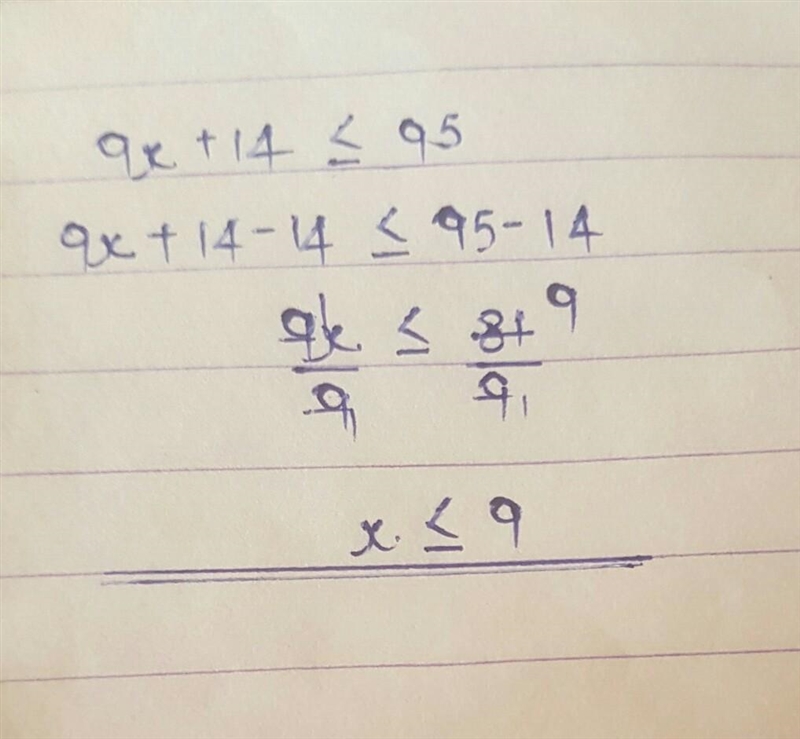 9x + 14 ≤ 95
9x + 14 - 14 ≤ 95 - 14
9x/9 ≤ 81/9
1 9
1 1
x ≤ 9